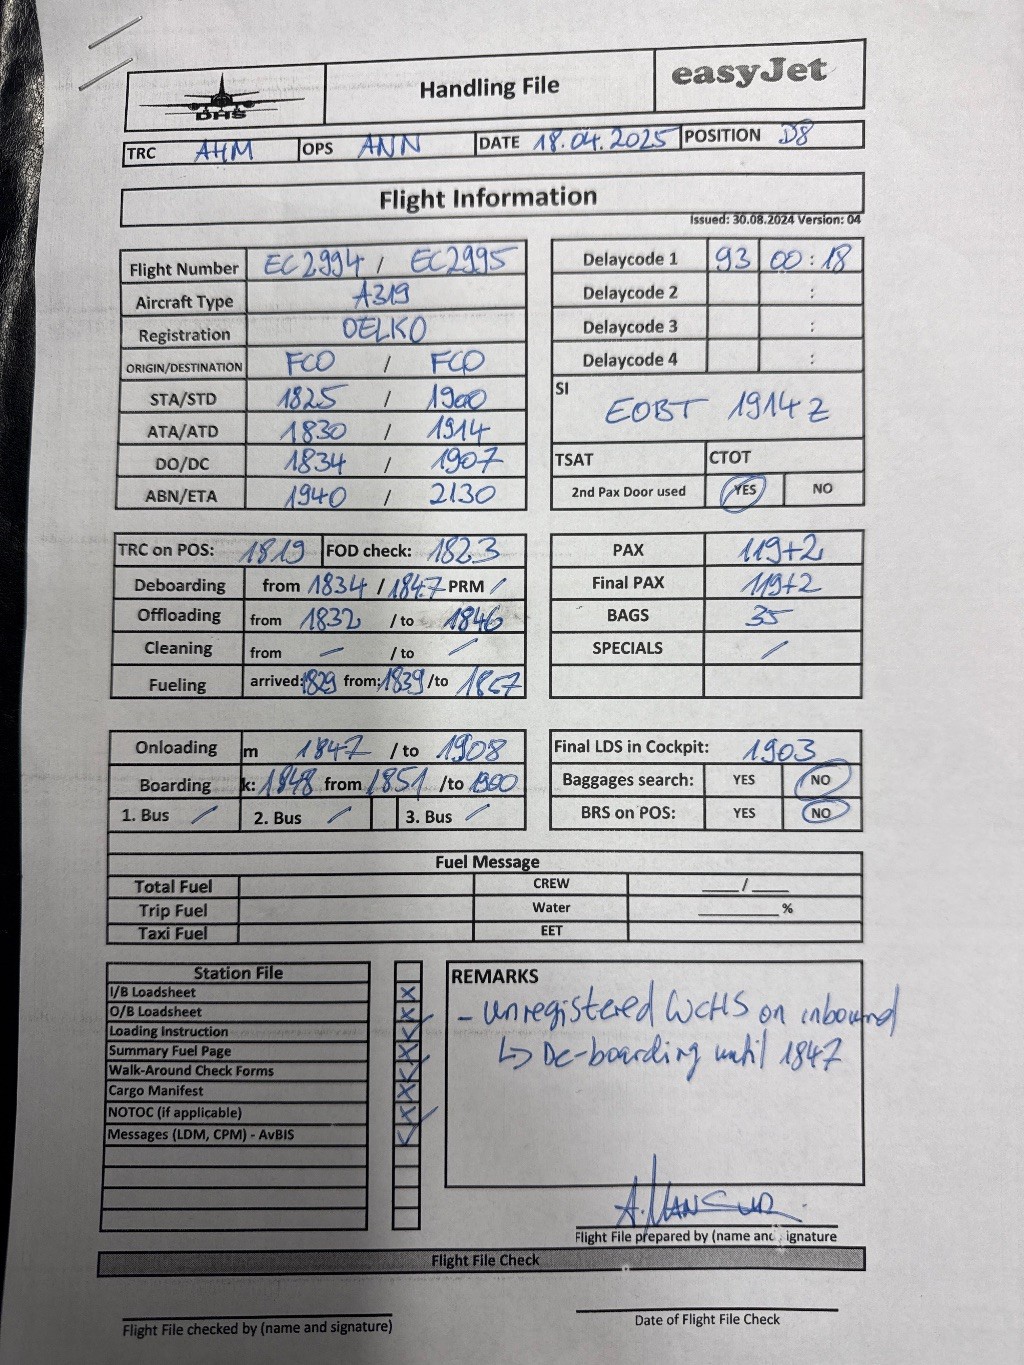 DHS
Handling File
easyJet
TRC AHM OPS ANN DATE 18.04.2025 POSITION D8
Flight Information
Issued: 30.08.2024 Version: 04
Flight Number EC2994 / EC2995
Aircraft Type A319
Registration OELKO
ORIGIN/DESTINATION FCO / FCO
STA/STD 1825 / 1900
ATA/ATD 1830 / 1914
DO/DC 1834 / 1907
ABN/ETA 1940 / 2130
Delaycode 1 93 00:18
Delaycode 2 :
Delaycode 3 :
Delaycode 4 :
SI
EOBT 1914z
TSAT CTOT
2nd Pax Door used YES NO
TRC on POS: 1819 FOD check: 1823
Deboarding from 1834 / 1847 PRM /
Offloading from 1832 / to 1846
Cleaning from — / to /
Fueling arrived: 1829 from: 1839 /to
PAX 119+2
Final PAX 119+2
BAGS 35
SPECIALS /
Onloading m 1847 / to 1908
Boarding k: 1848 from 1851 /to 1900
1. Bus / 2. Bus / 3. Bus /
Final LDS in Cockpit: 1903
Baggages search: YES NO
BRS on POS: YES NO
Fuel Message
Total Fuel CREW ___/___
Trip Fuel Water ______%
Taxi Fuel EET
Station File
I/B Loadsheet X
O/B Loadsheet X
Loading Instruction ✓
Summary Fuel Page X
Walk-Around Check Forms ✓
Cargo Manifest X
NOTOC (if applicable) X
Messages (LDM, CPM) - AvBIS ✓
REMARKS
- unregistered WCHS on inbound
↳ De-boarding until 1847
A. MANSUR
Flight File prepared by (name and ignature
Flight File Check
Flight File checked by (name and signature)
Date of Flight File Check